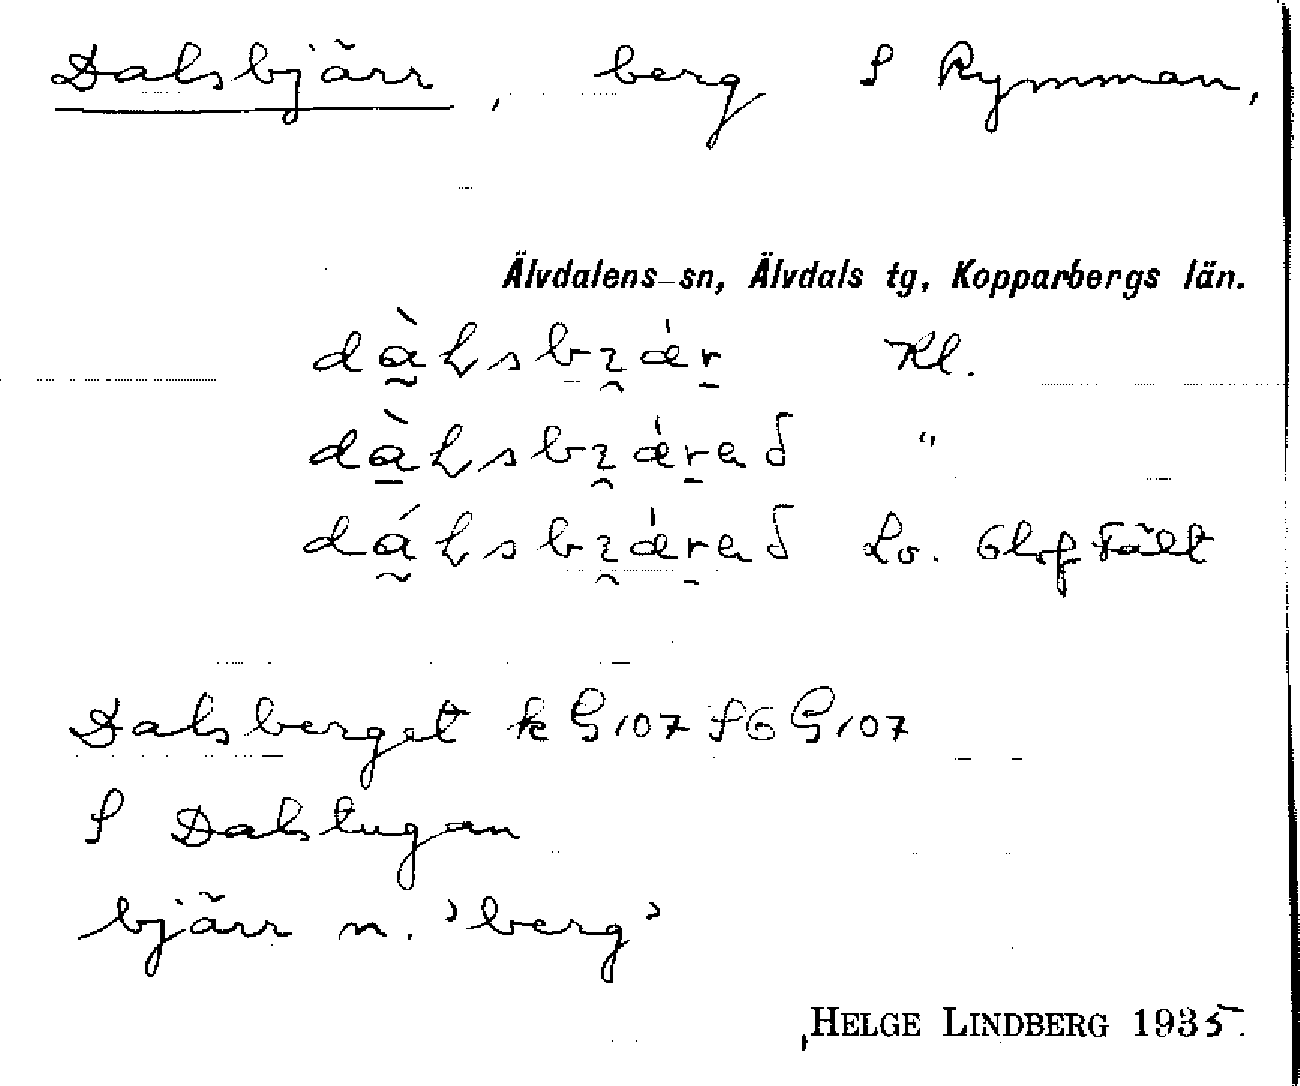 Dalsbjärr, berg S Rymman,
Älvdalens sn, Älvdals tg, Kopparbergs län.
Kl.
"
Lv. Olof Fält
Dalsberget k G 107 SG G 107
S Dalstugan
bjärr n. 'berg'
HELGE LINDBERG 1935.